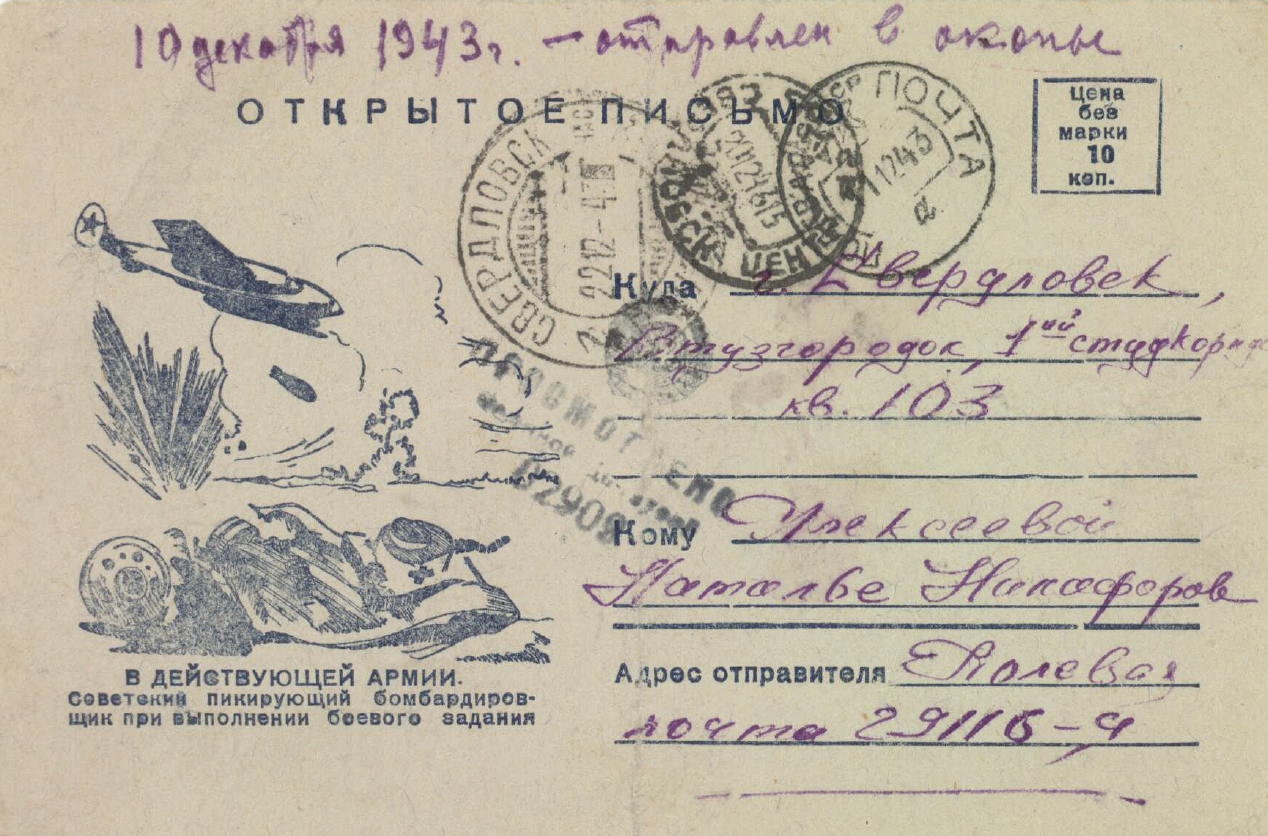 10 декабря 1943г. – отправлен в окопы
ОТКРЫТОЕ ПИСЬМО
Цена
без
марки
10
коп.
СВЕРДЛОВСК
22 12-43
ПОЧТА
12 43
а
ЦЕНТР
Куда г. Свердловск,
Втузгородок, 1ый студкорпус
кв. 103
ПРОСМОТРЕНО
Кому Алексеевой
Наталье Никифоров
Адрес отправителя Полевая
почта 29116-Ч
В ДЕЙСТВУЮЩЕЙ АРМИИ.
Советский пикирующий бомбардиров-
щик при выполнении боевого задания